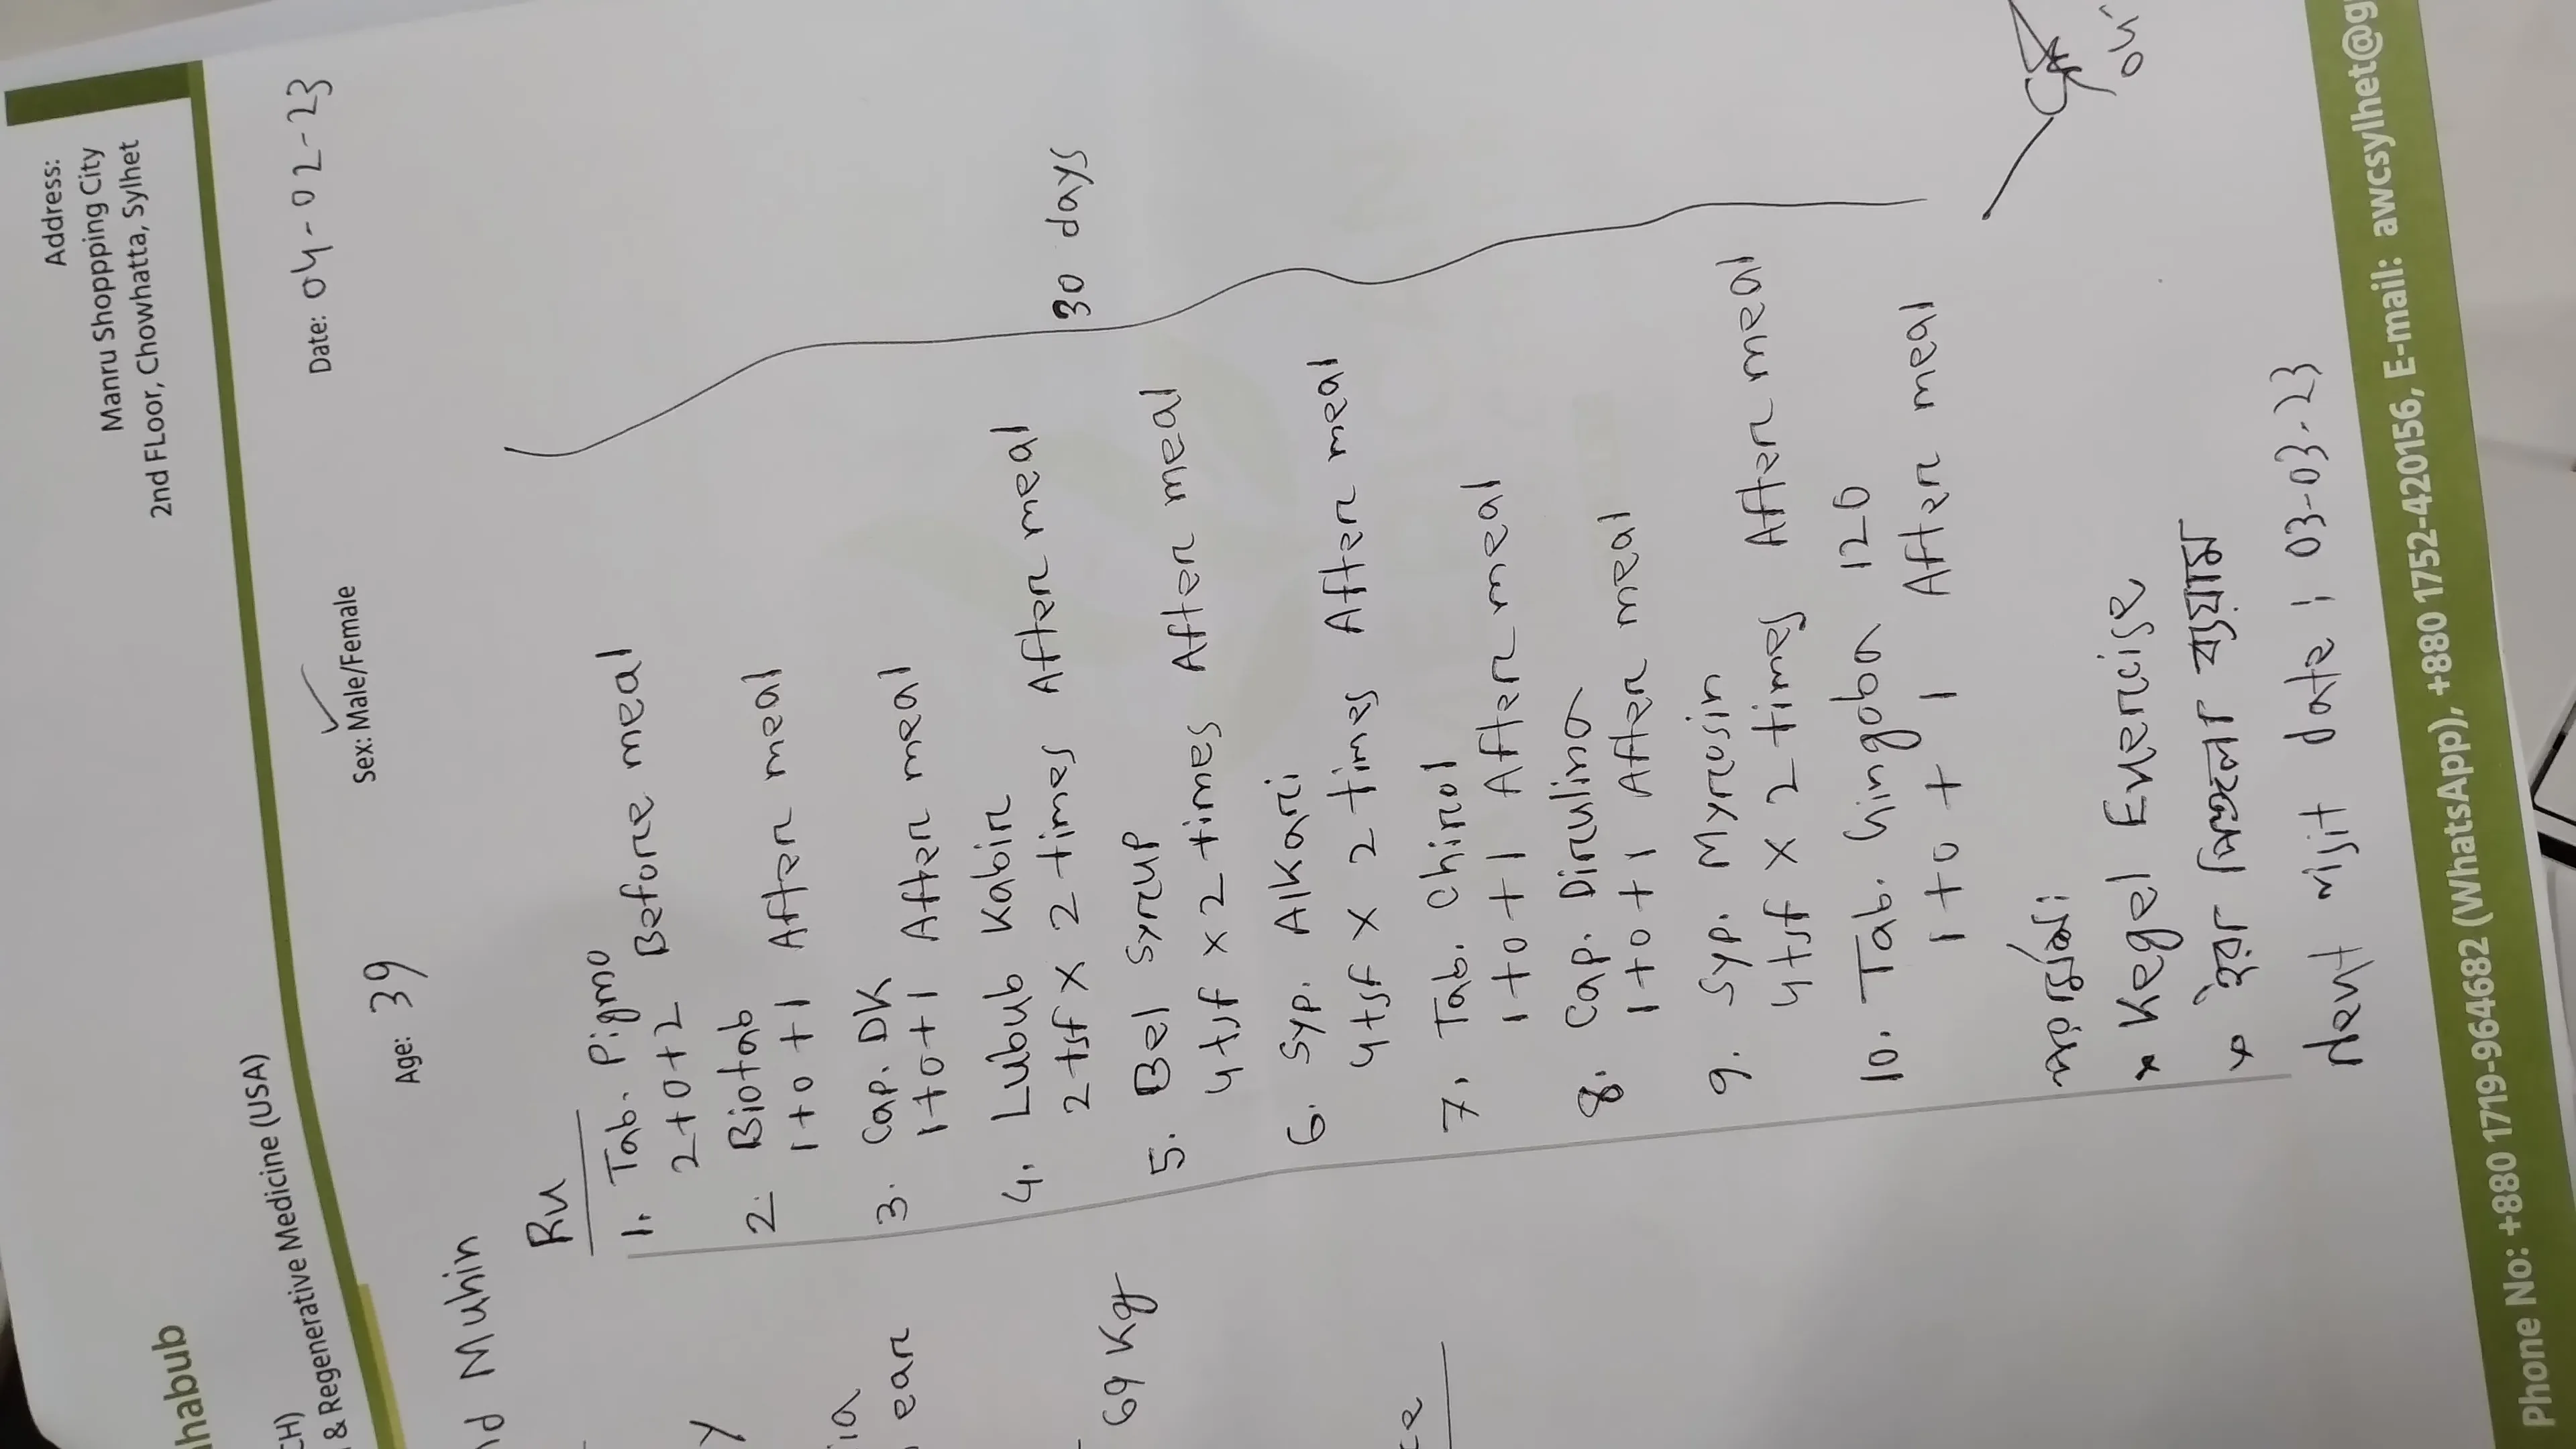 Address:
Manru Shoppping City
2nd FLoor, Chowhatta, Sylhet
habub
CH)
& Regenerative Medicine (USA)
Date: 04-02-23
Sex: Male/Female
Age: 39
Muhin
Rx
1. Tab. Pigmo
2+0+2 Before meal
2. Biotab
1+0+1 After meal
3. Cap. DK
1+0+1 After meal
4. Lubub Kabir
2 tsf x 2 times After meal
5. Bel syrup
4 tsf x 2 times After meal
6. Syp. Alkari
4 tsf x 2 times After meal
7. Tab. Chirol
1+0+1 After meal
8. Cap. Dirulina
1+0+1 After meal
9. Syp. Myrosin
4 tsf x 2 times After meal
10. Tab. Gingoba 120
1+0+1 After meal
30 days
ear
69 Kg
পরামর্শ:
* Kegel Exercise
* ব্যায়াম
Next visit date: 03-03-23
Phone No: +880 1719-964682 (WhatsApp), +880 1752-420156, E-mail: awcsylhet@g